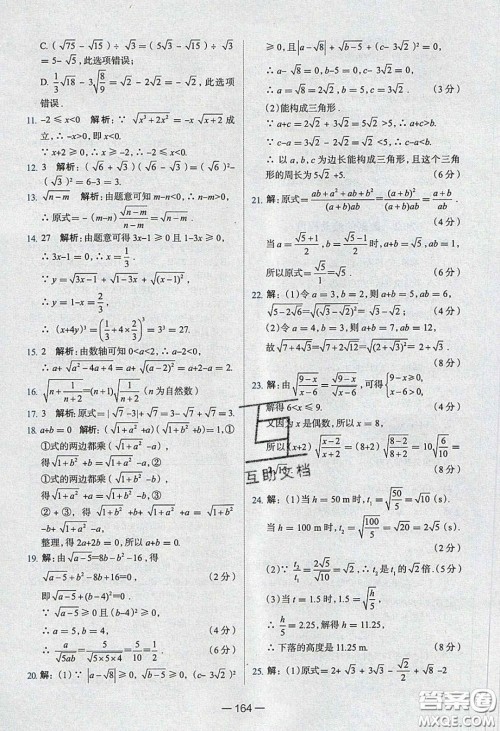 C. (√75 − √15) ÷ √3 = (5√3 − √15) ÷ √3
= 5− √5 , 此选项错误;
D. 1/3 √18 − 3√(8/9) = √2 − 2√2 = − √2 , 此选项
错误.
11. −2 ≤ x<0 解析: ∵ √(x³+2x²) = −x √(x+2) 成
立, ∴ −x>0, 即 x<0.
∵ x+2 ≥ 0, ∴ x ≥ −2, ∴ −2 ≤ x<0.
12. 3 解析: (√6 + √3)(√6 − √3) = (√6)²−
(√3)² = 6−3 = 3.
13. √(n−m) 解析: 由题意可知 m−n<0, n−m>0.
∴ 原式= −(m−n) √(n−m)/(n−m) = √(n−m).
14. 27 解析: 由题意可得 3x−1 ≥ 0 且 1−3x ≥ 0
∴ x = 1/3.
∵ y = √(3x−1) + √(1−3x) + √((x−1)²),
∴ y = 1−x = 2/3,
∴ (x+4y)³ = (1/3+4×2/3)³ = 3³ = 27.
15. 2 解析: 由数轴可知 0<a<2, ∴ a−2<0,
∴ a+ √(a²−4a+4) = a+ √((a−2)²) = a+2−a = 2.
16. √(n+n/(n+2)) =(n+1)√(1/(n+2)) (n 为自然数)
17. 3 解析: 原式= |√7 −3|+ √7 = 3− √7 + √7 = 3.
18. a+b=0 解析: ∵ (√(1+a²) +a)(√(1+b²) +b) = 1,
①式的两边都乘 (√(1+a²) −a),
得 √(1+b²) +b= √(1+a²) −a, ②
①式的两边都乘 (√(1+b²) −b),
得 √(1+a²) +a= √(1+b²) −b, ③
②+③, 得 b+ √(1+b²) + √(1+a²) +a= √(1+b²) −b+
√(1+a²) −a,
整理, 得 2a+2b = 0, 所以 a+b = 0.
19. 解: 由 √(a−5) = 8b−b²−16, 得
√(a−5) +b²−8b+16=0, (2 分)
即 √(a−5) +(b−4)²=0,
∵ √(a−5) ≥ 0 且 (b−4)² ≥ 0,
∴ a = 5, b = 4, (4 分)
∴ a/√(5ab) = 5/√(5×5×4) = 5/10 = 1/2. (6 分)
20. 解: (1) ∵ |a−√8| ≥ 0, √(b−5) ≥ 0, (c− 3√2)²
≥ 0, 且 |a−√8| + √(b−5) +(c− 3√2)² = 0,
∴ a−√8 = 0, b−5 = 0, c− 3√2 = 0,
∴ a = 2√2 , b = 5, c = 3√2 . (3 分)
(2)能构成三角形.
∵ a+c = 2√2 + 3√2 = 5√2 > 5,
∴ a+c>b,
∵ c−a = 3√2 − 2√2 = √2 <5,
∴ c−a<b,
∴ 以 a, b, c 为边长能构成三角形, 且这个三角
形的周长为 5√2 +5. (6 分)
21. 解: 原式= (ab+a²+ab+b²)/((a+b)ab) = (a+b)²/((a+b)ab) = (a+b)/ab.
当 a = (√5+1)/2, b = (√5−1)/2 时, a+b = √5 , ab = 1,
所以原式= √5/1 = √5 . (6 分)
22. 解: (1)令 a = 3, b = 2, 则 a+b = 5, ab = 6,
∴ √(5−2√6) = √((√3−√2)²) = √3 − √2 . (4 分)
(2)令 a = 4, b = 3, 则 a+b = 7, ab = 12,
故 √(7+4√3) = √(7+2√12) = √((2+√3)²) = 2+√3.
(8 分)
23. 解: 由 √((9−x)/(x−6)) = √(9−x)/√(x−6) , 可得 {9−x ≥ 0, x−6>0,
解得 6<x ≤ 9.
又因为 x 是偶数, 所以 x = 8,
所以 (x+2) √((x−2)/(x+2)) = (8+2) √((8−2)/(8+2)) = 10√(6/10) =
(8 分)
24. 解: (1)当 h = 50 m 时, t₁ = √(50/5) = √10 (s).
当 h = 100 m 时, t₂ = √(100/5) = √20 = 2√5 (s).
(2) ∵ t₂/t₁ = 2√5/√10 = √2 , ∴ t₂ 是 t₁ 的 √2 倍. (5 分)
(3)当 t = 1.5 时, 1.5 = √(h/5) ,
解得 h = 11.25,
∴ 下落的高度是 11.25 米. (8 分)
25. 解: (1)原式 = 2+ √3 + 3√3 − √2/2 + √8 −√2
— 164 —
互助文档
答案圈
MXQE.COM